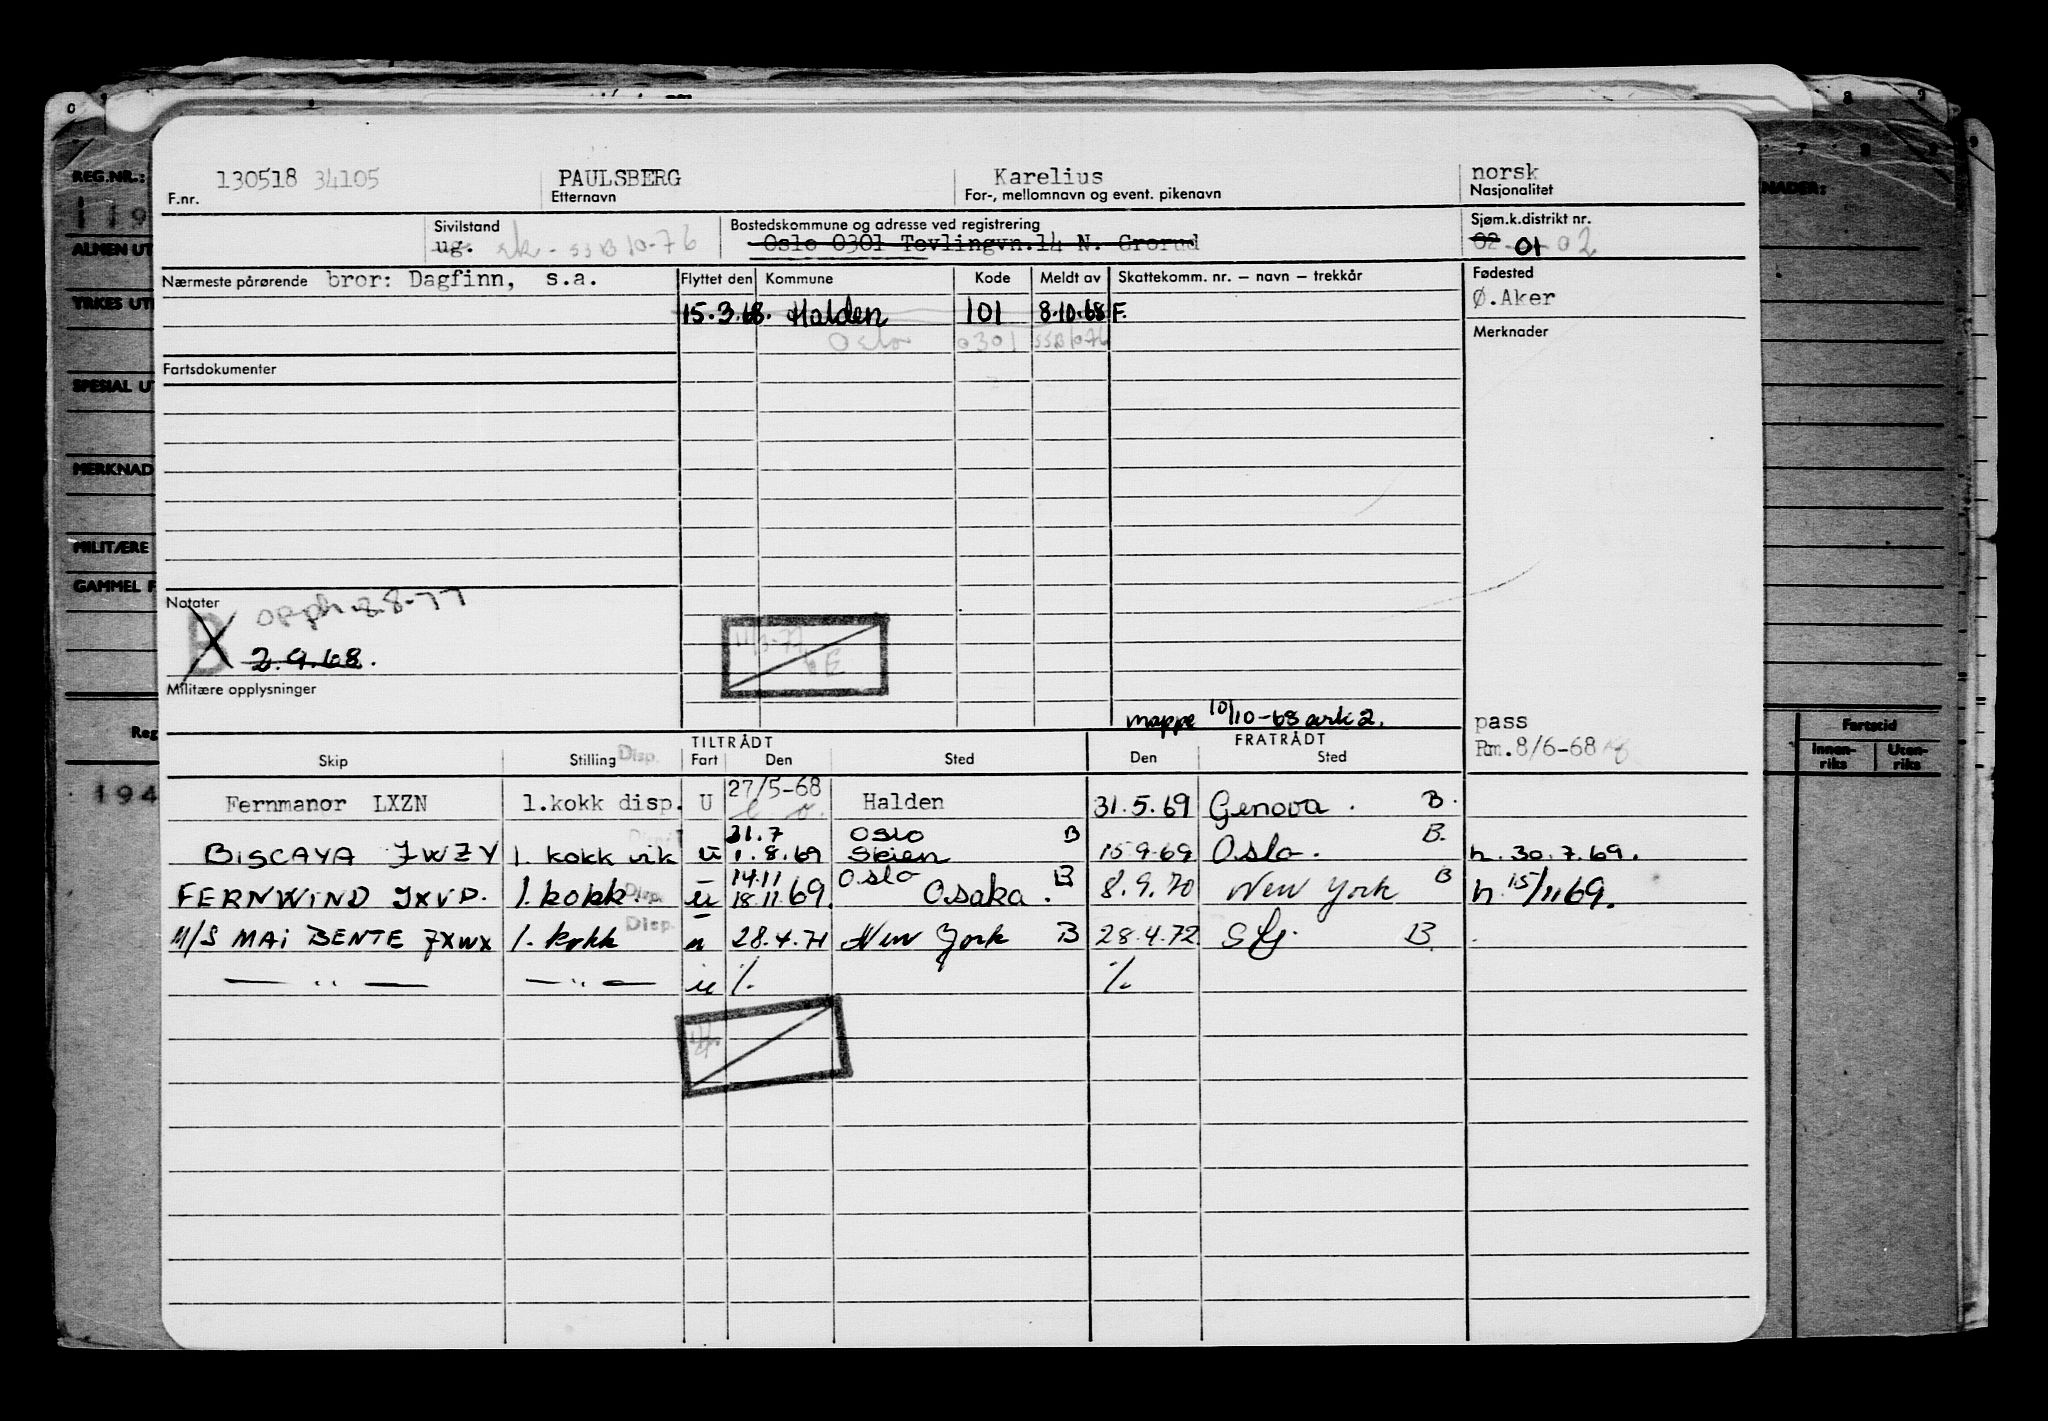 130518 34105 PAULSBERG Karelius norsk
F.nr. Etternavn For-, mellomnavn og event. pikenavn Nasjonalitet
REG.NR.:
Sivilstand Bostedskommune og adresse ved registrering Sjøm.k.distrikt nr.
ug. - SSB 10-76 Oslo 0301 Tevlingvn.14 N. Grorud 02 01 02
ALMEN UT
Nærmeste pårørende bror: Dagfinn, s.a. Flyttet den Kommune Kode Meldt av Skattekomm. nr. – navn – trekkår Fødested
Ø.Aker
YRKES UT
15.3.68. Halden 101 8.10.68 F.
Oslo 0301 SSB 10-76
Merknader
Fartsdokumenter
SPESIAL UT
MERKNAD
MILITÆRE
GAMMEL F
Notater
B opph. 8.8-77
2.9.68.
Militære opplysninger
mappe 10/10-68 ark 2. pass
Pm.8/6-68
TILTRÅDT FRATRÅDT
Skip Stilling Disp. Fart Den Sted Den Sted
Fartstid
Innen-riks Uten-riks
Reg
194
Fernmanor LXZN 1.kokk disp. U 27/5-68 Halden 31.5.69 Genova. B.
31.7 Oslo B B.
BISCAYA JWZY 1. kokk vik u 1.8.69 Skien 15.9.69 Oslo. h. 30.7.69.
14.11 Oslo B B
FERNWIND JXVD. 1. kokk. Disp. u 18.11.69. Osaka. 8.9.70 New York h. 15/11.69.
M/S MAI BENTE JXWX 1. kokk Disp. u 28.4.71 New York B 28.4.72 B
— " — — " — u %. %.